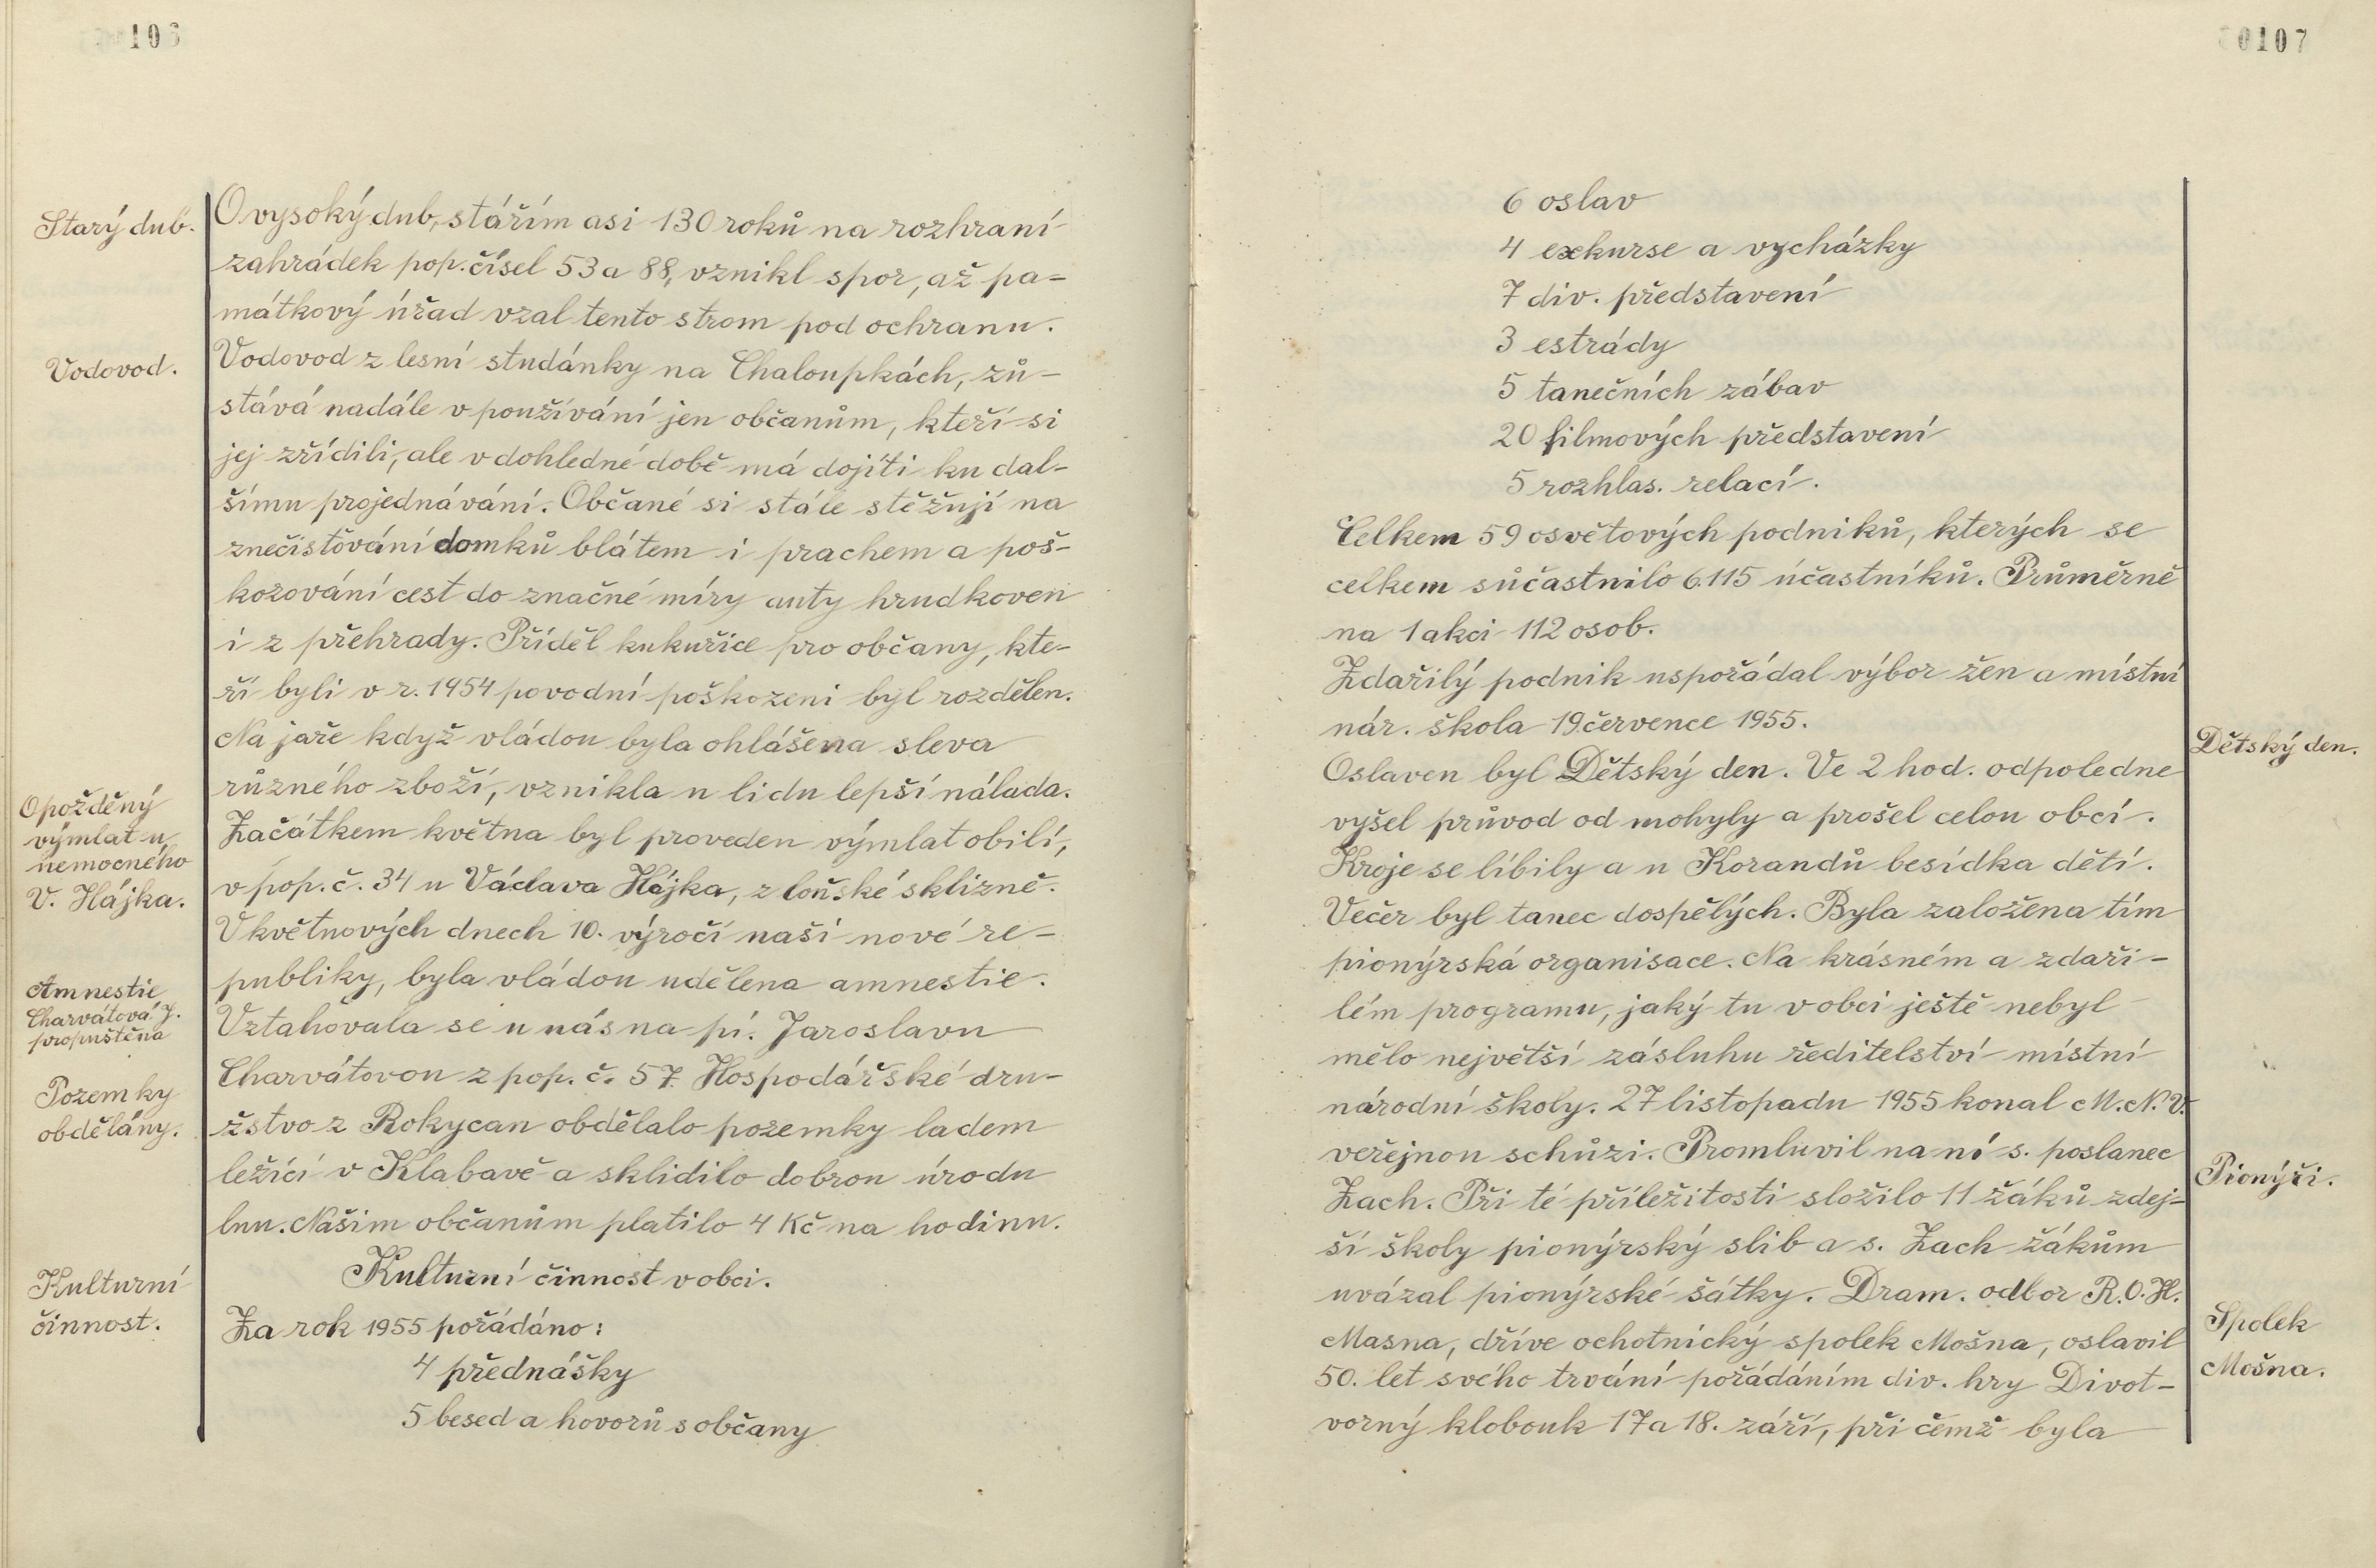 106
Starý dub.
O vysoký dub, stářím asi 130 roků na rozhraní
zahrádek pop. čísel 53 a 88, vznikl spor, až pa-
mátkový úřad vzal tento strom pod ochranu.
Vodovod.
Vodovod z lesní studánky na Chaloupkách, zů-
stává nadále v používání jen občanům, kteří si
jej zřídili, ale v dohledné době má dojíti ku dal-
šímu projednávání. Občané si stále stěžují na
znečisťování domků blátem i prachem a poš-
kozování cest do značné míry auty hrudkoven
i z přehrady. Příděl kukuřice pro občany, kte-
ří byli v r. 1954 povodní poškozeni byl rozdělen.
Na jaře když vládou byla ohlášena sleva
různého zboží, vznikla u lidu lepší nálada.
Opožděný
výmlat u
nemocného
V. Hájka.
Začátkem května byl proveden výmlat obilí,
v pop. č. 34 u Václava Hájka, z loňské sklizně.
V květnových dnech 10. výročí naší nové re-
publiky, byla vládou udělena amnestie.
Amnestie
Charvátová J.
propuštěna
Vztahovala se u nás na pí. Jaroslavu
Charvátovou z pop. č. 57. Hospodářské dru-
Pozemky
obdělány.
žstvo z Rokycan obdělalo pozemky ladem
ležící v Klabavě a sklidilo dobrou úrodu
lnu. Našim občanům platilo 4 Kč na hodinu.
Kulturní
činnost.
Kulturní činnost v obci.
Za rok 1955 pořádáno:
4 přednášky
5 besed a hovorů s občany
0107
6 oslav
4 exkurse a vycházky
7 div. představení
3 estrády
5 tanečních zábav
20 filmových představení
5 rozhlas. relací.
Celkem 59 osvětových podniků, kterých se
celkem súčastnilo 6.115 účastníků. Průměrně
na 1 akci 112 osob.
Zdařilý podnik uspořádal výbor žen a místní
nár. škola 19 července 1955.
Dětský den.
Oslaven byl Dětský den. Ve 2 hod. odpoledne
vyšel průvod od mohyly a prošel celou obcí.
Kroje se líbily a u Korandů besídka dětí.
Večer byl tanec dospělých. Byla založena tím
pionýrská organisace. Na krásném a zdaři-
lém programu, jaký tu v obci ještě nebyl
mělo největší zásluhu ředitelství místní
národní školy. 27 listopadu 1955 konal M.N.V.
veřejnou schůzi. Promluvil na ní s. poslanec
Pionýři.
Zach. Při té příležitosti složilo 11 žáků zdej-
ší školy pionýrský slib a s. Zach žákům
uvázal pionýrské šátky. Dram. odbor R.O.H.
Spolek
Mošna.
Masna, dříve ochotnický spolek Mošna, oslavil
50. let svého trvání pořádáním div. hry Divot-
vorný klobouk 17 a 18. září, při čemž byla